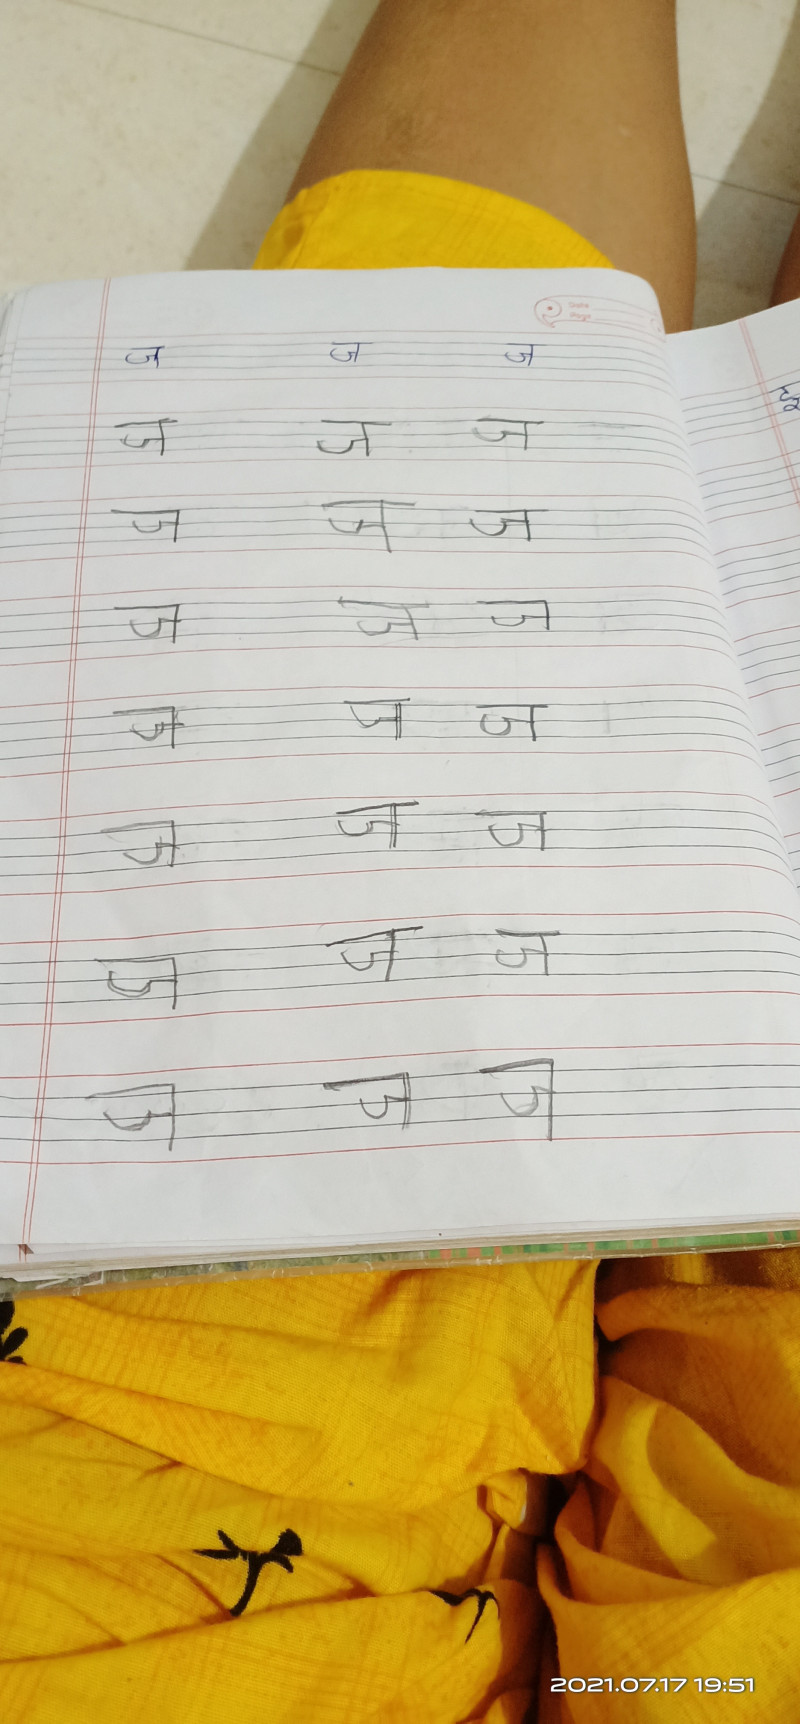 Date
Page
ज ज ज
ज ज ज
ज ज ज
ज ज ज
ज ज ज
ज ज ज
ज ज ज
ज ज ज
2021.07.17 19:51